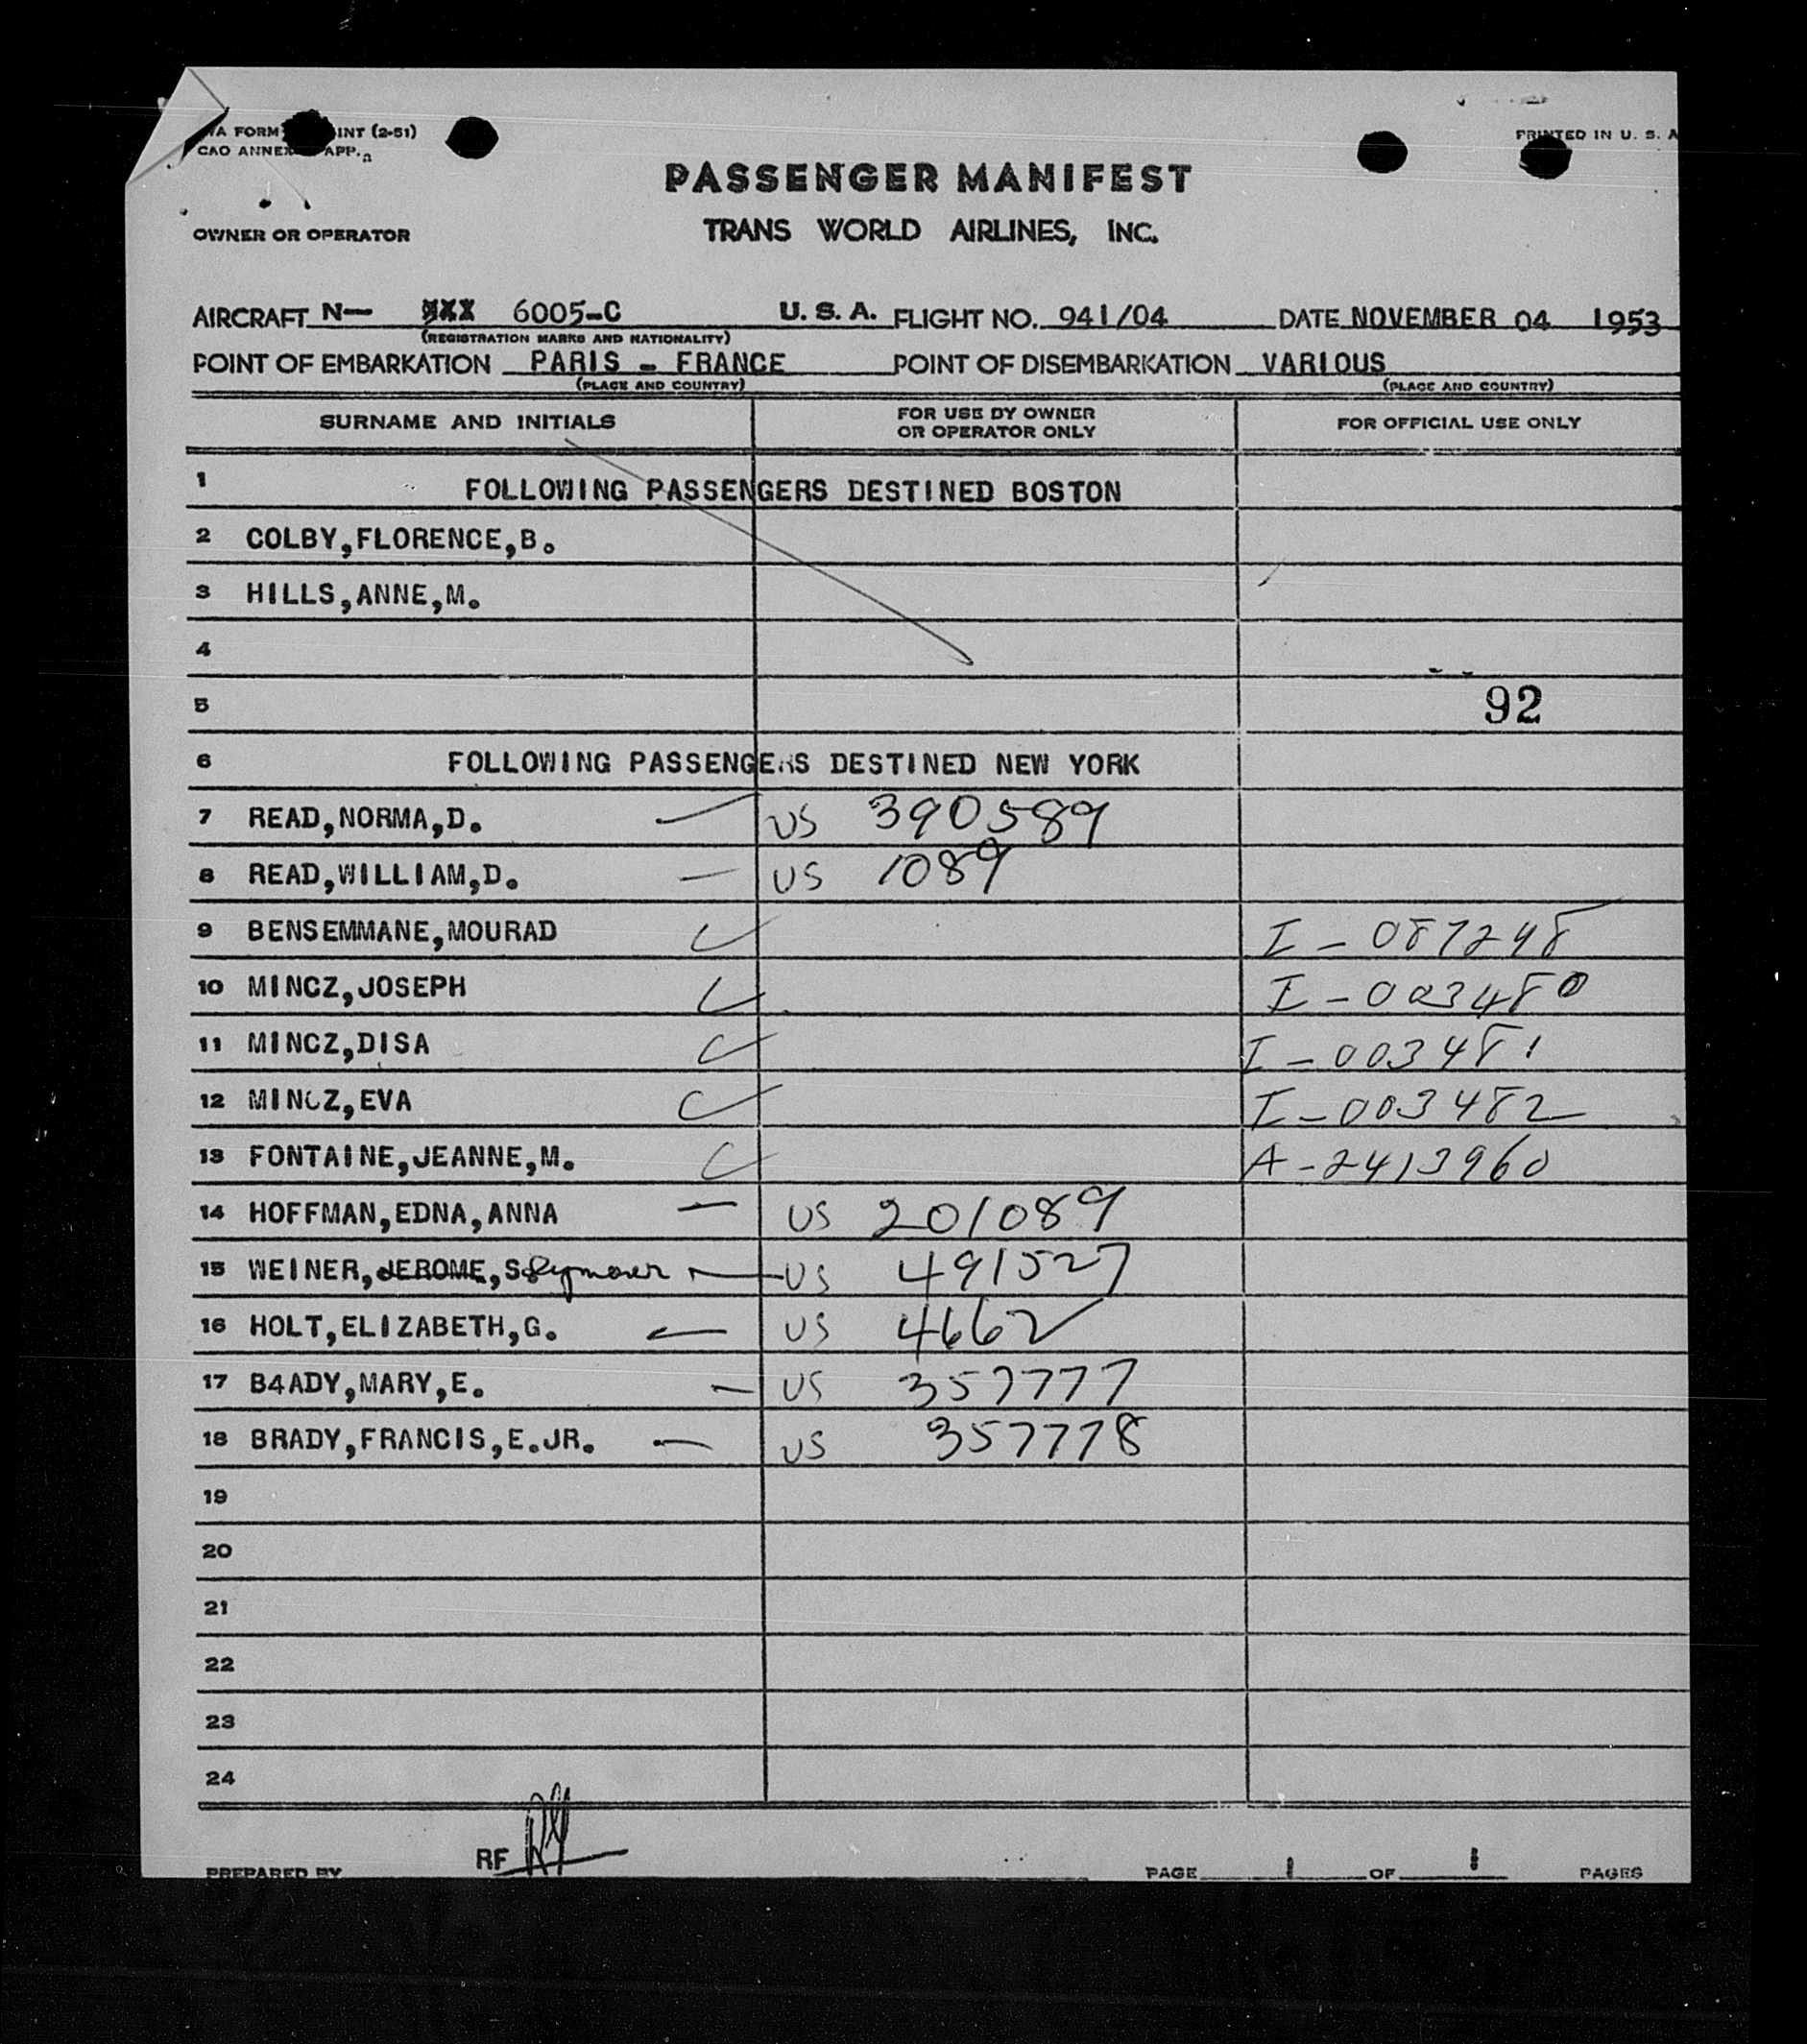 INT (2-51)
PRINTED IN U. S. A
CAO ANNEX APP.
PASSENGER MANIFEST
OWNER OR OPERATOR
TRANS WORLD AIRLINES, INC.
AIRCRAFT N— 6005-C U. S. A. FLIGHT NO. 941/04 DATE NOVEMBER 04 1953
(REGISTRATION MARKS AND NATIONALITY)
POINT OF EMBARKATION PARIS - FRANCE POINT OF DISEMBARKATION VARIOUS
(PLACE AND COUNTRY) (PLACE AND COUNTRY)
SURNAME AND INITIALS FOR USE BY OWNER OR OPERATOR ONLY FOR OFFICIAL USE ONLY
1 FOLLOWING PASSENGERS DESTINED BOSTON
2 COLBY,FLORENCE,B.
3 HILLS,ANNE,M.
4
5 92
6 FOLLOWING PASSENGERS DESTINED NEW YORK
7 READ,NORMA,D. US 390589
8 READ,WILLIAM,D. US 1089
9 BENSEMMANE,MOURAD I - 087248
10 MINCZ,JOSEPH I - 003480
11 MINCZ,DISA I - 003481
12 MINCZ,EVA I - 003482
13 FONTAINE,JEANNE,M. A - 2413960
14 HOFFMAN,EDNA,ANNA US 201089
15 WEINER,JEROME,S Seymour US 491527
16 HOLT,ELIZABETH,G. US 4662
17 B4ADY,MARY,E. US 357777
18 BRADY,FRANCIS,E.JR. US 357778
19
20
21
22
23
24
PREPARED BY RF PAGE 1 OF 1 PAGES